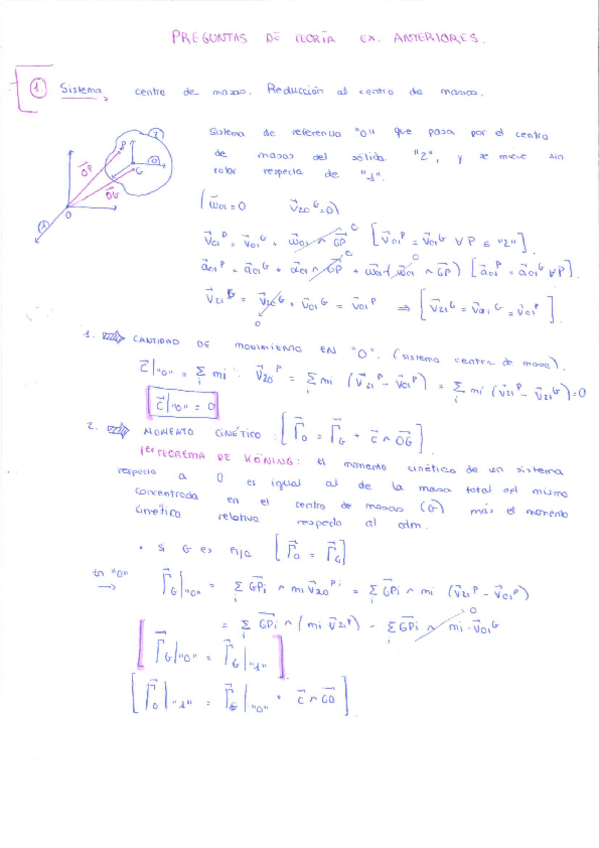 PREGUNTAS DE TEORÍA EX. ANTERIORES.
1 Sistema centro de masas. Reducción al centro de masas.
Sistema de referencia "0" que pasa por el centro
de masas del sólido "2", y se mueve sin
rotar respecto de "1".
(ω̄01 = 0 V̄20^G = 0)
V̄01^P = V̄01^G + ω̄01 ∧ GP [V̄01^P = V̄01^G ∀P ∈ "2"].
ā01^P = ā01^G + ᾱ01 ∧ GP + ω̄01 ∧ (ω̄01 ∧ GP) [ā01^P = ā01^G ∀P].
V̄21^G = V̄20^G + V̄01^G = V̄01^P ⇒ [V̄21^G = V̄01^G = V̄01^P].
1. CANTIDAD DE MOVIMIENTO EN "0". (sistema centro de masa).
C̄|"0" = Σ mi · V̄20^P = Σ mi (V̄21^P - V̄01^P) = Σ mi (V̄21^P - V̄21^G) = 0
C̄|"0" = 0
2. MOMENTO CINÉTICO: [Γ̄0 = Γ̄G + C̄ ∧ OG].
1er TEOREMA DE KÖNING: el momento cinético de un sistema
respecto a O es igual al de la masa total del mismo
concentrada en el centro de masas (G) más el momento
cinético relativo respecto al cdm.
• Si G es fijo [Γ̄0 = Γ̄G]
en "0" → Γ̄G|"0" = Σ GPi ∧ mi V̄20^Pi = Σ GPi ∧ mi (V̄21^P - V̄01^P)
= Σ GPi ∧ (mi V̄21^P) - Σ GPi ∧ mi · V̄01^G
[Γ̄G|"0" = Γ̄G|"1"]
[Γ̄0|"1" = Γ̄G|"0" + C̄ ∧ GO].